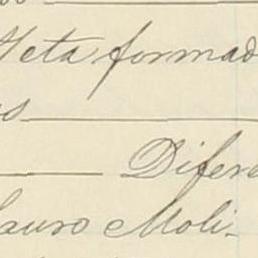 Neta formad
os
Difere
Lauro Moli-